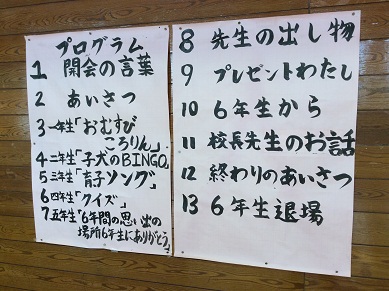 プログラム
1 開会の言葉
2 あいさつ
3 一年生「おむすび
ころりん」
4 二年生「子犬のBINGO」
5 三年生「育子ソング」
6 四年生「クイズ」
7 五年生「6年間の思い出の
場所6年生にありがとう」
8 先生の出し物
9 プレゼントわたし
10 6年生から
11 校長先生のお話
12 終わりのあいさつ
13 6年生退場